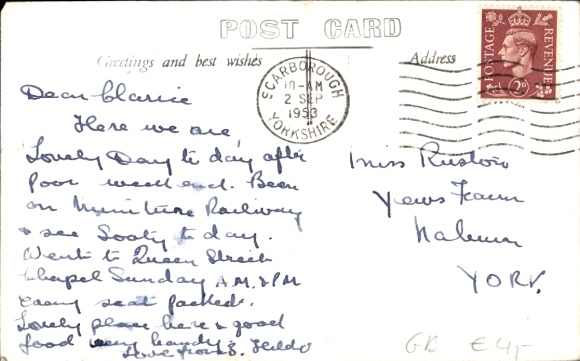 POST CARD
Greetings and best wishes
Address
SCARBOROUGH
10-AM
2 SEP
1953
YORKSHIRE
POSTAGE
REVENUE
2D
Dear Clarice
Here we are
Lovely Day to day after
poor week end. Been
on Miniture Railway
& see Sooty to day.
Went to Queen Street
Chapel Sunday A.M. & PM
every seat packed.
Lovely place here & good
food very handy.
Love from
Miss
Yews Farm
YORK.
GB £4/-